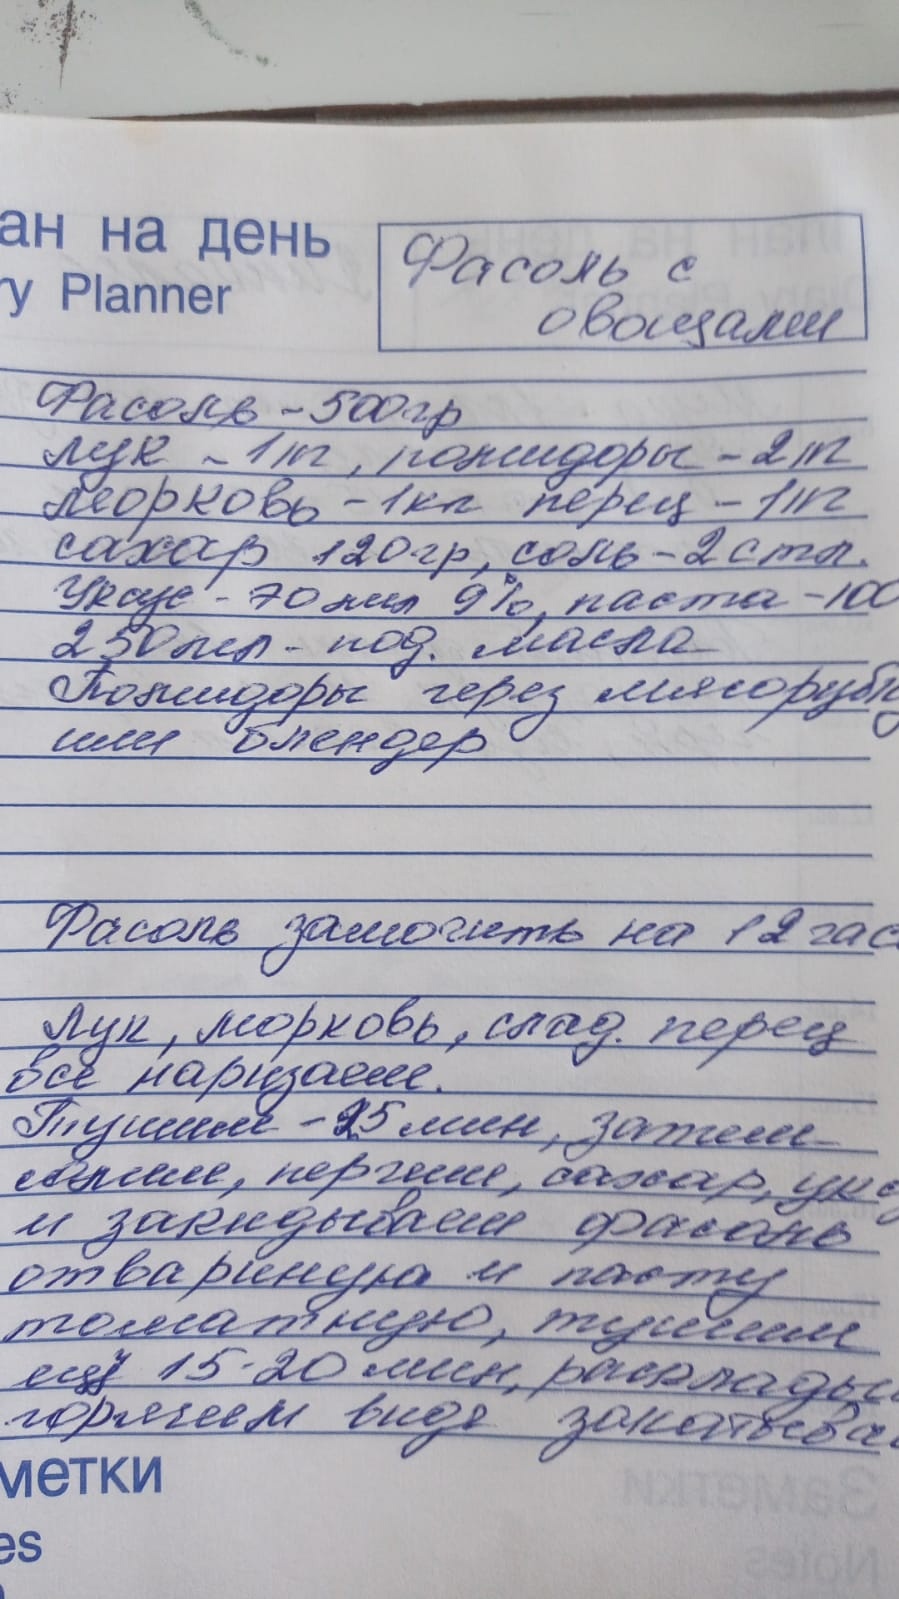 ан на день
ry Planner
Фасоль с
овощами
Фасоль - 500гр
Лук - 1кг, помидоры - 2кг
морковь - 1кг перец - 1кг
сахар 120гр, соль - 2стл.
Уксус - 70мл 9%, паста - 100
250мл - под. масла
Помидоры через мясорубку
или блендер
Фасоль замочить на 12 час
Лук, морковь, слад. перец
все нарізаем.
Тушим - 25 мин, затем
солим, перчим, сахар, укс
и закидываем фасоль
отваринную и пасту
томатную, тушим
ещё 15-20 мин, расклады
горячем виде закатыва
метки
es